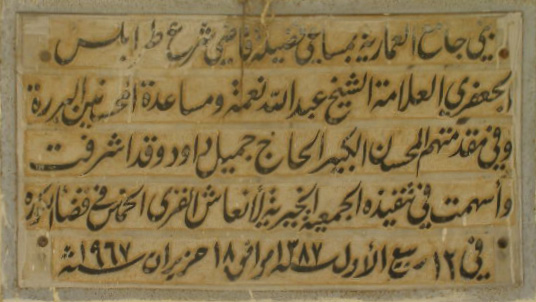 بني جامع العمارية بمساعي فضيلة قاضي شرع طرابلس
الجعفري العلامة الشيخ عبد الله نعمة ومساعدة المحسنين البررة
وفي مقدمتهم المحسن الكبير الحاج جميل داود وقد اشرفت
وأسهمت في تنفيذه الجمعية الخيرية لأنعاش القرى الخمس في قضا الكورة
في ١٢ ربيع الأول سنة ١٣٨٧ الموافق ١٨ حزيران سنة ١٩٦٧